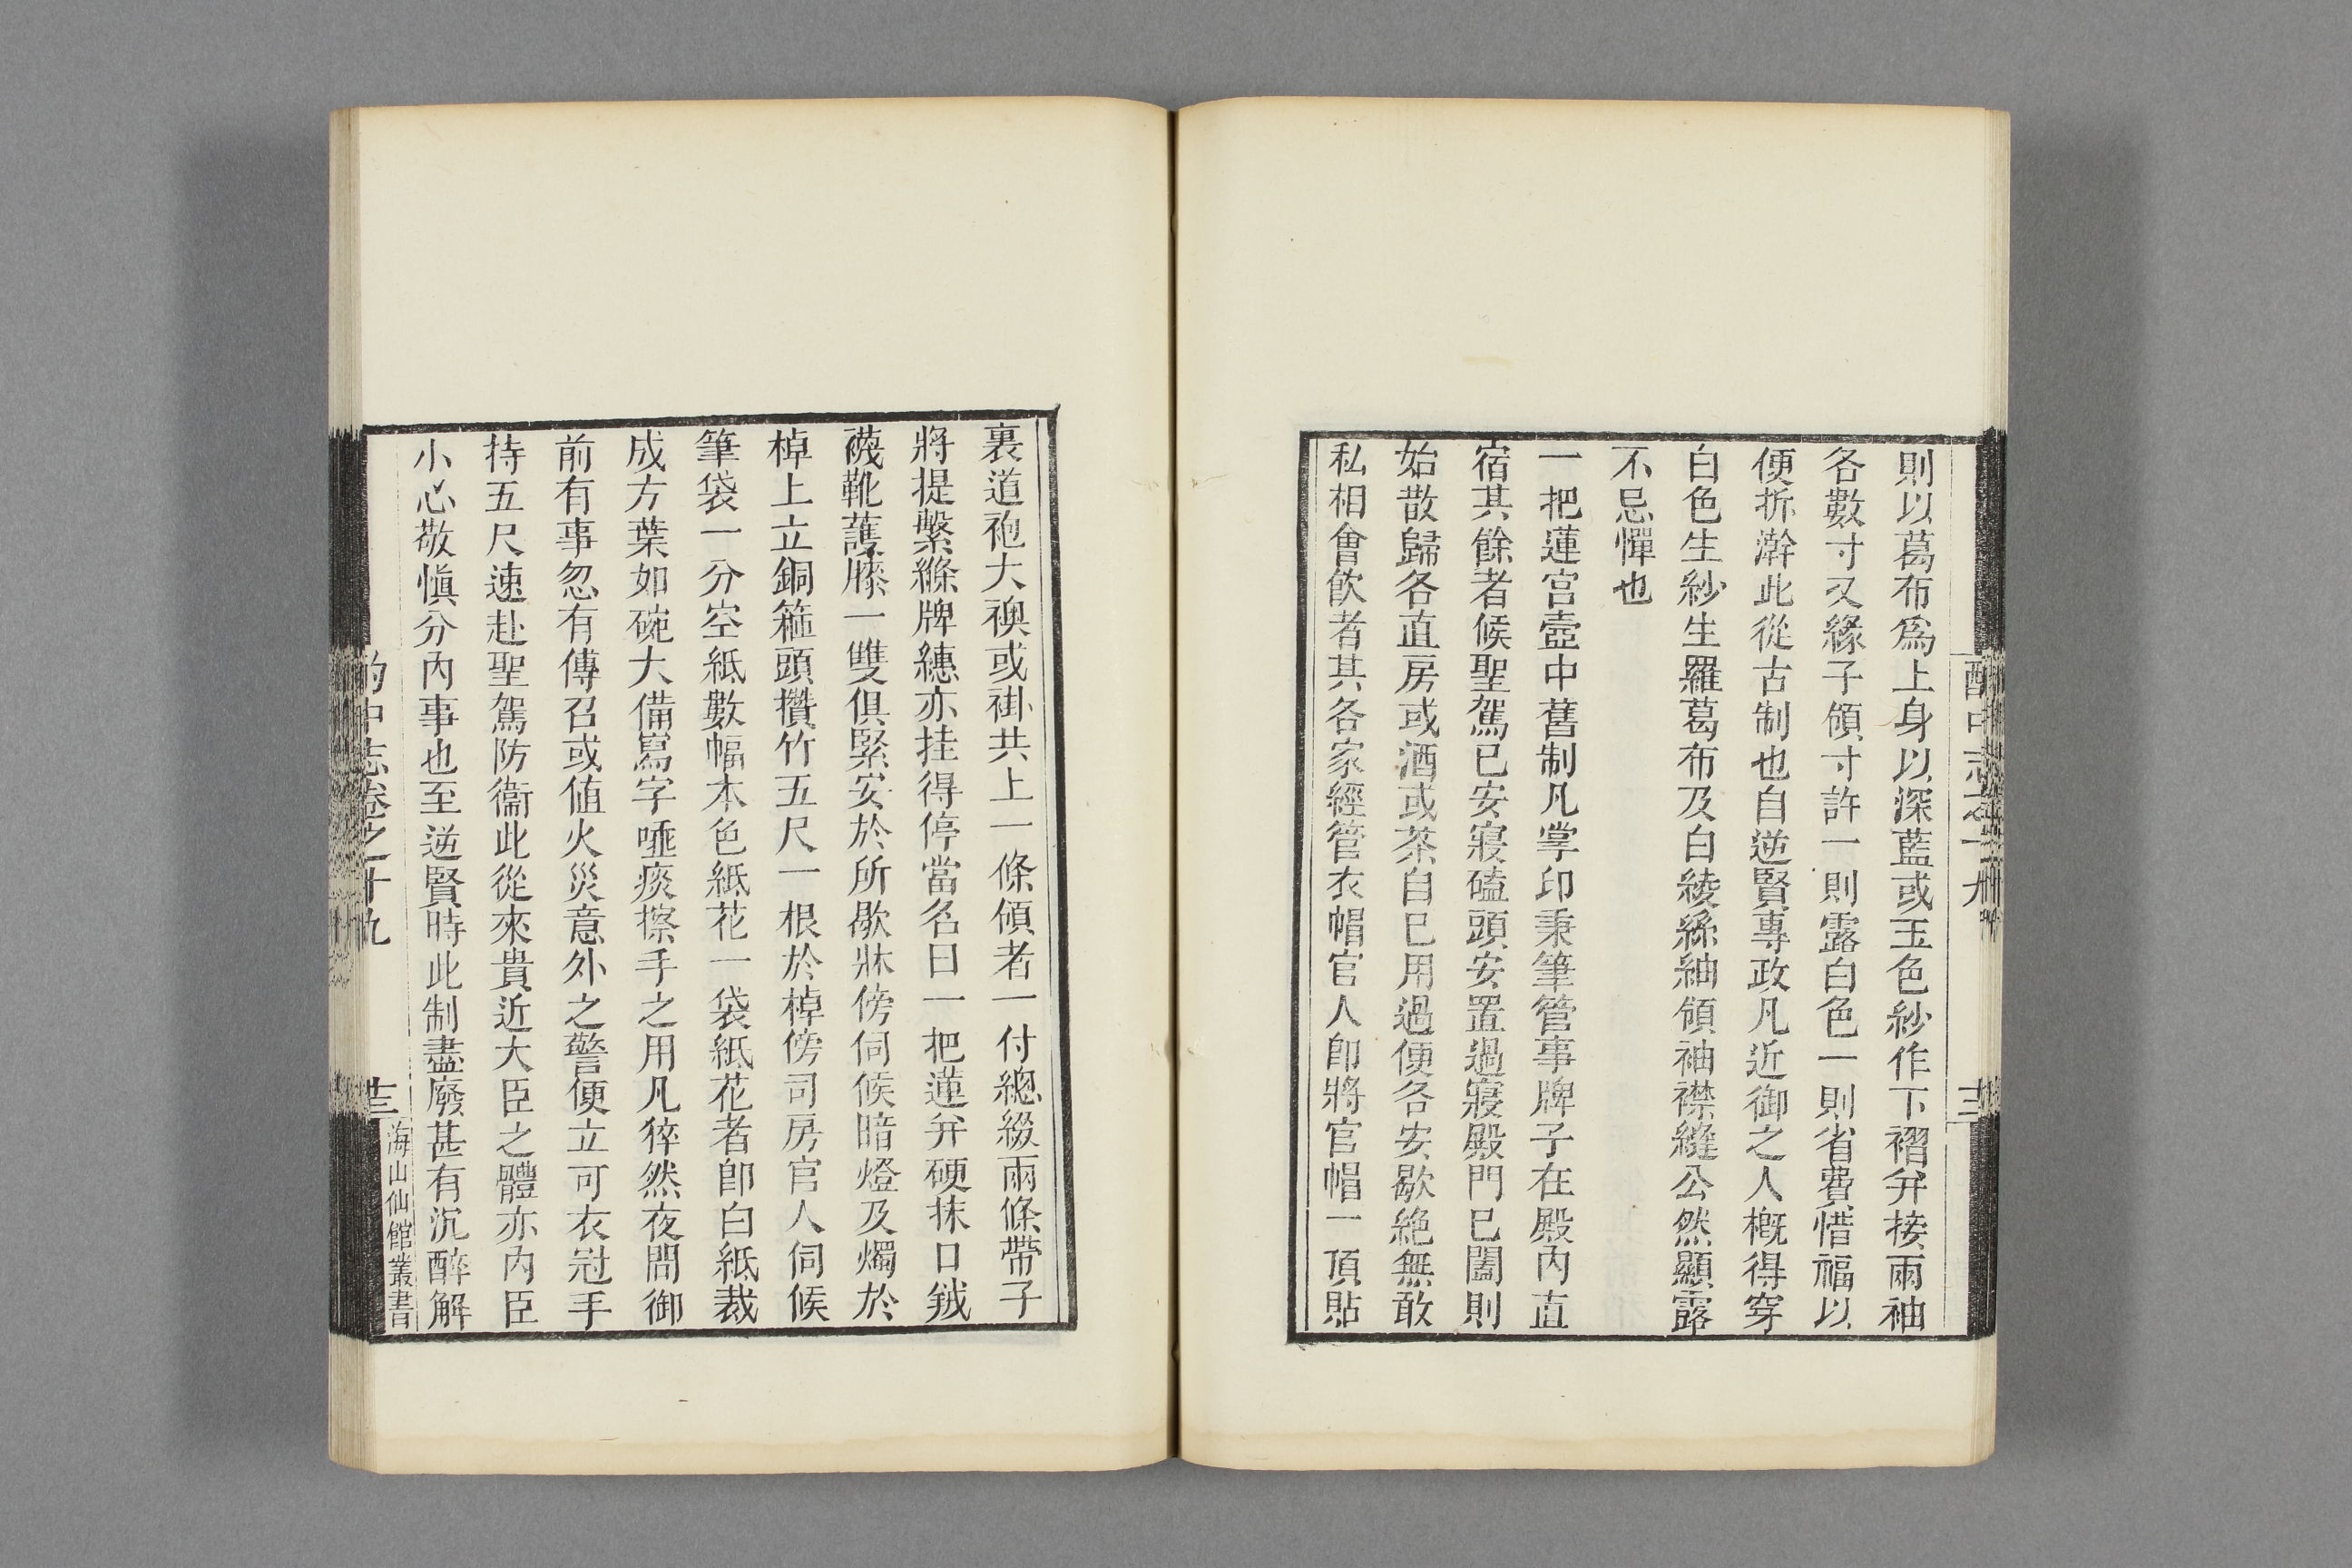 則以葛布爲上身以深藍或玉色紗作下褶并接兩袖
各數寸又緣子領寸許一則露白色一則省費惜福以
便拆澣此從古制也自逆賢專政凡近御之人槪得穿
白色生紗生羅葛布及白綾絲紬領袖襟縫公然顯露
不忌憚也
一把蓮宮壼中舊制凡掌印秉筆管事牌子在殿內直
宿其餘者候聖駕已安寢磕頭安置過寢殿門已闔則
始散歸各直房或酒或茶自已用過便各安歇絶無敢
私相會飮者其各家經管衣帽官人卽將官帽一頂貼
裏道袍大襖或褂共上一條領者一付總綴兩條帶子
將提繫縧牌繐亦挂得停當名曰一把蓮并硬抹口絨
襪靴護膝一雙俱緊安於所歇牀傍伺候暗燈及燭於
棹上立銅箍頭攢竹五尺一根於棹傍司房官人伺候
筆袋一分空紙數幅本色紙花一袋紙花者卽白紙裁
成方葉如碗大備寫字唾痰擦手之用凡猝然夜間御
前有事忽有傳召或値火災意外之警便立可衣冠手
持五尺速赴聖駕防衞此從來貴近大臣之體亦內臣
小心敬愼分內事也至逆賢時此制盡廢甚有沉醉解
酌中志卷之十九
海山仙館叢書